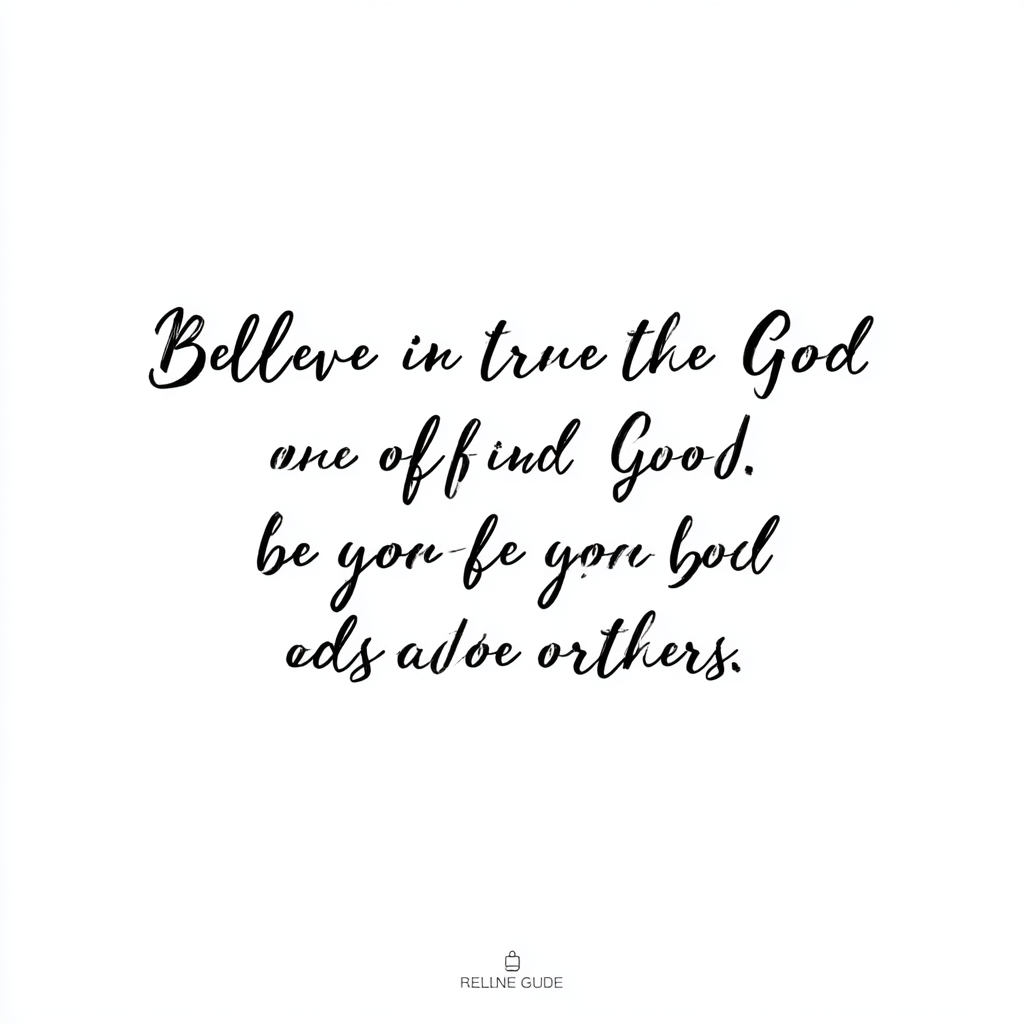 Belleve in true the God
one off ind Good.
be you-fe your bod
ads adoe orthers.
RELLNE GUDE